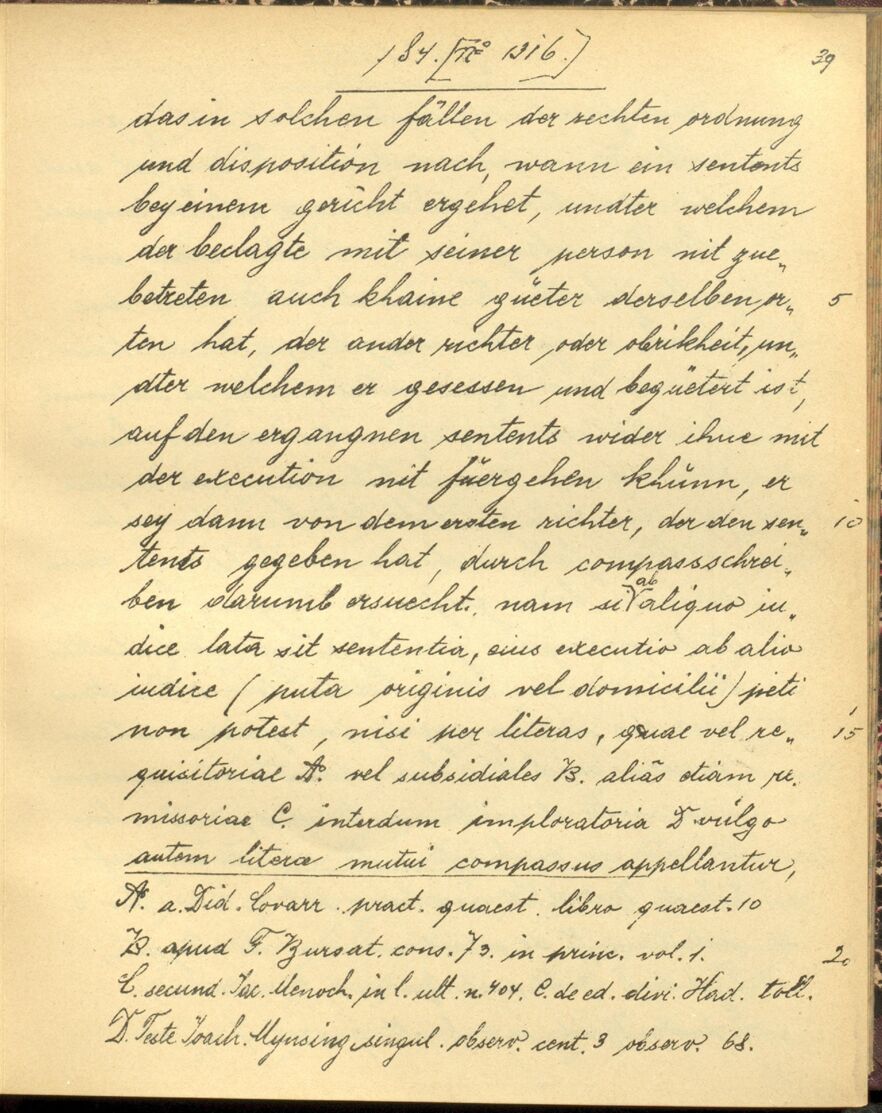 184. [Nº 1316.]
39
das in solchen fällen der rechten ordnung
und disposition nach, wann ein sentents
bey einem gericht ergehet, undter welchem
der beclagte mit seiner person nit zue„
betreten auch khaine güeter derselben or„ 5
ten hat, der ander richter oder obrikheit, un„
dter welchem er gesessen und begüetert ist,
auf den ergangnen sentents wider ihne mit
der execution nit füergehen khünn, er
sey dann von dem ersten richter, der den sen„ 10
tents gegeben hat, durch compassschrei„
ben darumb ersuecht. nam si ab aliquo iu„
dice lata sit sententia, eius executio ab alio
iudice (puta originis vel domicilii) peti
non potest, nisi per literas, quae vel re„ 15
quisitoriae A. vel subsidiales B. aliâs etiam re„
missoriae C. interdum imploratoria D vulgo
autem literae mutui compassus appellantur,
A. a. Did. Covarr. pract. quaest. libro quaest. 10
B. apud F. Bursat. cons. 73. in princ. vol. 1. 20
C. secund. Jac. Menoch. in l. ult. n. 404. C. de ed. divi. Had. toll.
D. Teste Joach. Mynsing. singul. observ. cent. 3 observ. 68.